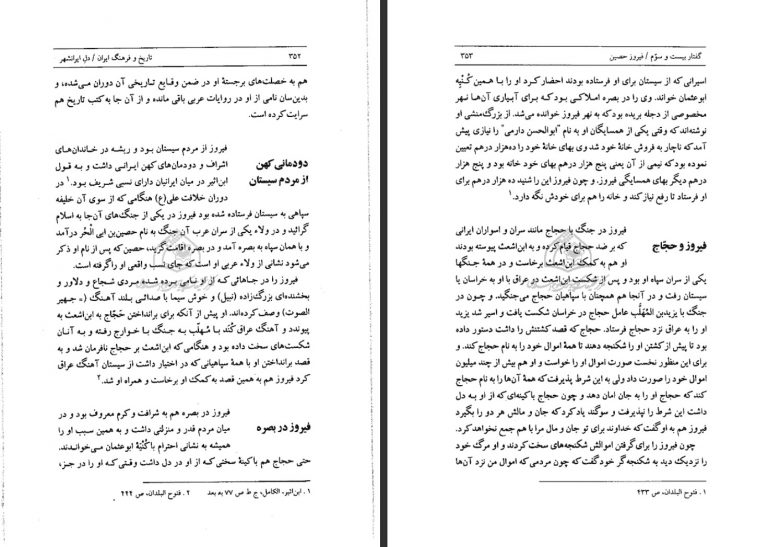 ۳۵۲
تاریخ و فرهنگ ایران / دل ایرانشهر
هم به خصلت‌های برجستهٔ او در ضمن وقایع تاریخی آن دوران می‌شده، و
بدین‌سان نامی از او در روایات عربی باقی مانده و از آن جا به کتب تاریخ هم
سرایت کرده است.
دودمانی کهن
از مردم سیستان
فیروز از مردم سیستان بود و ریشه در خاندان‌های
اشراف و دودمان‌های کهن ایرانی داشت و به قول
ابن‌اثیر در میان ایرانیان دارای نسبی شریف بود.۱ در
دوران خلافت علی(ع) هنگامی که از سوی آن خلیفه
سپاهی به سیستان فرستاده شده بود فیروز در یکی از جنگ‌های آن‌جا به اسلام
گرائید و در ولاء یکی از سران عرب آن جنگ به نام حصین‌بن ابی الْحُر درآمد
و با همان سپاه به بصره آمد و در بصره اقامت گزید، حصین که پس از نام او ذکر
می‌شود نشانی از ولاء عربی او است که جای نسب واقعی او را گرفته است.
فیروز را در جاهائی که از او نامی برده شده مردی شجاع و دلاور و
بخشنده‌ای بزرگ‌زاده (نبیل) و خوش سیما با صدائی بلند آهنگ (= جهیر
الصوت) وصف کرده‌اند. او پیش از آنکه برای برانداختن حَجّاج به ابن‌اشعث به
پیوندد و آهنگ عراق کُند با مُهلّب به جنگ با خوارج رفته و به آنان
شکست‌های سخت داده بود و هنگامی که ابن‌اشعث بر حجاج نافرمان شد و به
قصد برانداختن او با همهٔ سپاهیانی که در اختیار داشت از سیستان آهنگ عراق
کرد فیروز هم به همین قصد به کمک او برخاست و همراه او شد.۲
فیروز در بصره
فیروز در بصره هم به شرافت و کرم معروف بود و در
میان مردم قدر و منزلتی داشت و به همین سبب او را
همیشه به نشانی احترام با کُنْیهٔ ابوعثمان می‌خواندند.
حتی حجاج هم با کینهٔ سختی که از او در دل داشت وقتی که او را در جزء
۱ . ابن‌اثیر، الکامل، ج ط ص ۷۷ به بعد
۲ . فتوح البلدان، ص ۴۴۲
گفتار بیست و سوّم / فیروز حصین
۳۵۳
اسیرانی که از سیستان برای او فرستاده بودند احضار کرد او را با همین کُنْیِه
ابوعثمان خواند. وی را در بصره املاکی بود که برای آبیاری آن‌ها نهر
مخصوصی از دجله بریده بود که به نهر فیروز خوانده می‌شد. از بزرگ‌منشی او
نوشته‌اند که وقتی یکی از همسایگان او به نام "ابوالحسن دارمی" را نیازی پیش
آمد که ناچار به فروش خانهٔ خود شد وی بهای خانهٔ خود را ده‌هزار درهم تعیین
نموده بود که نیمی از آن یعنی پنج هزار درهم بهای خود خانه بود و پنج هزار
درهم دیگر بهای همسایگی فیروز. و چون فیروز این را شنید ده هزار درهم برای
او فرستاد تا رفع نیاز کند و خانه را هم برای خودش نگه دارد.۱
فیروز و حجّاج
فیروز در جنگ با حجاج مانند سران و اسواران ایرانی
که بر ضد حجاج قیام کرده و به ابن‌اشعث پیوسته بودند
او هم به کمک ابن‌اشعث برخاست و در همهٔ جنگها
یکی از سران سپاه او بود و پس از شکست ابن‌اشعث در عراق با او به خراسان یا
سیستان رفت و در آنجا هم همچنان با سپاهیان حجاج می‌جنگید و چون در
جنگ با یزیدبن المُهَلَّب عامل حجاج در خراسان شکست یافت و اسیر شد یزید
او را به عراق نزد حجاج فرستاد. حجاج که قصد کشتنش را داشت دستور داده
بود تا پیش از کشتن او را شکنجه دهند تا همهٔ اموال خود را به نام حجاج کند. و
برای این منظور نخست صورت اموال او را خواست و او هم بیش از چند میلیون
اموال خود را صورت داد ولی به این شرط پذیرفت که همهٔ آن‌ها را به نام حجاج
کند که حجاج او را به جان امان دهد و چون حجاج با کینه‌ای که از او به دل
داشت این شرط را نپذیرفت و سوگند یاد کرد که جان و مالش هر دو را بگیرد
فیروز هم به او گفت که خداوند برای تو جان و مال مرا با هم جمع نخواهد کرد.
چون فیروز را برای گرفتن اموالش شکنجه‌های سخت کردند و او مرگ خود
را نزدیک دید به شکنجه‌گر خود گفت که چون مردمی که اموال من نزد آن‌ها
۱ . فتوح البلدان، ص ۴۳۳